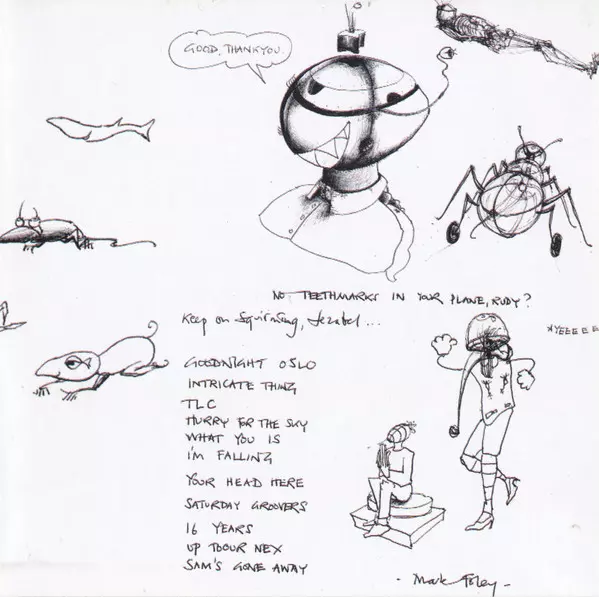 GOOD, THANKYOU.
NO TEETHMARKS IN YOUR PLANE, RUDY?
Keep on squirming, Jezabel...
AYEEEEE
GOODNIGHT OSLO
INTRICATE THING
TLC
HURRY FOR THE SKY
WHAT YOU IS
I'M FALLING
YOUR HEAD HERE
SATURDAY GROOVERS
16 YEARS
UP TO OUR NEX
SAM'S GONE AWAY
- Mark Foley -